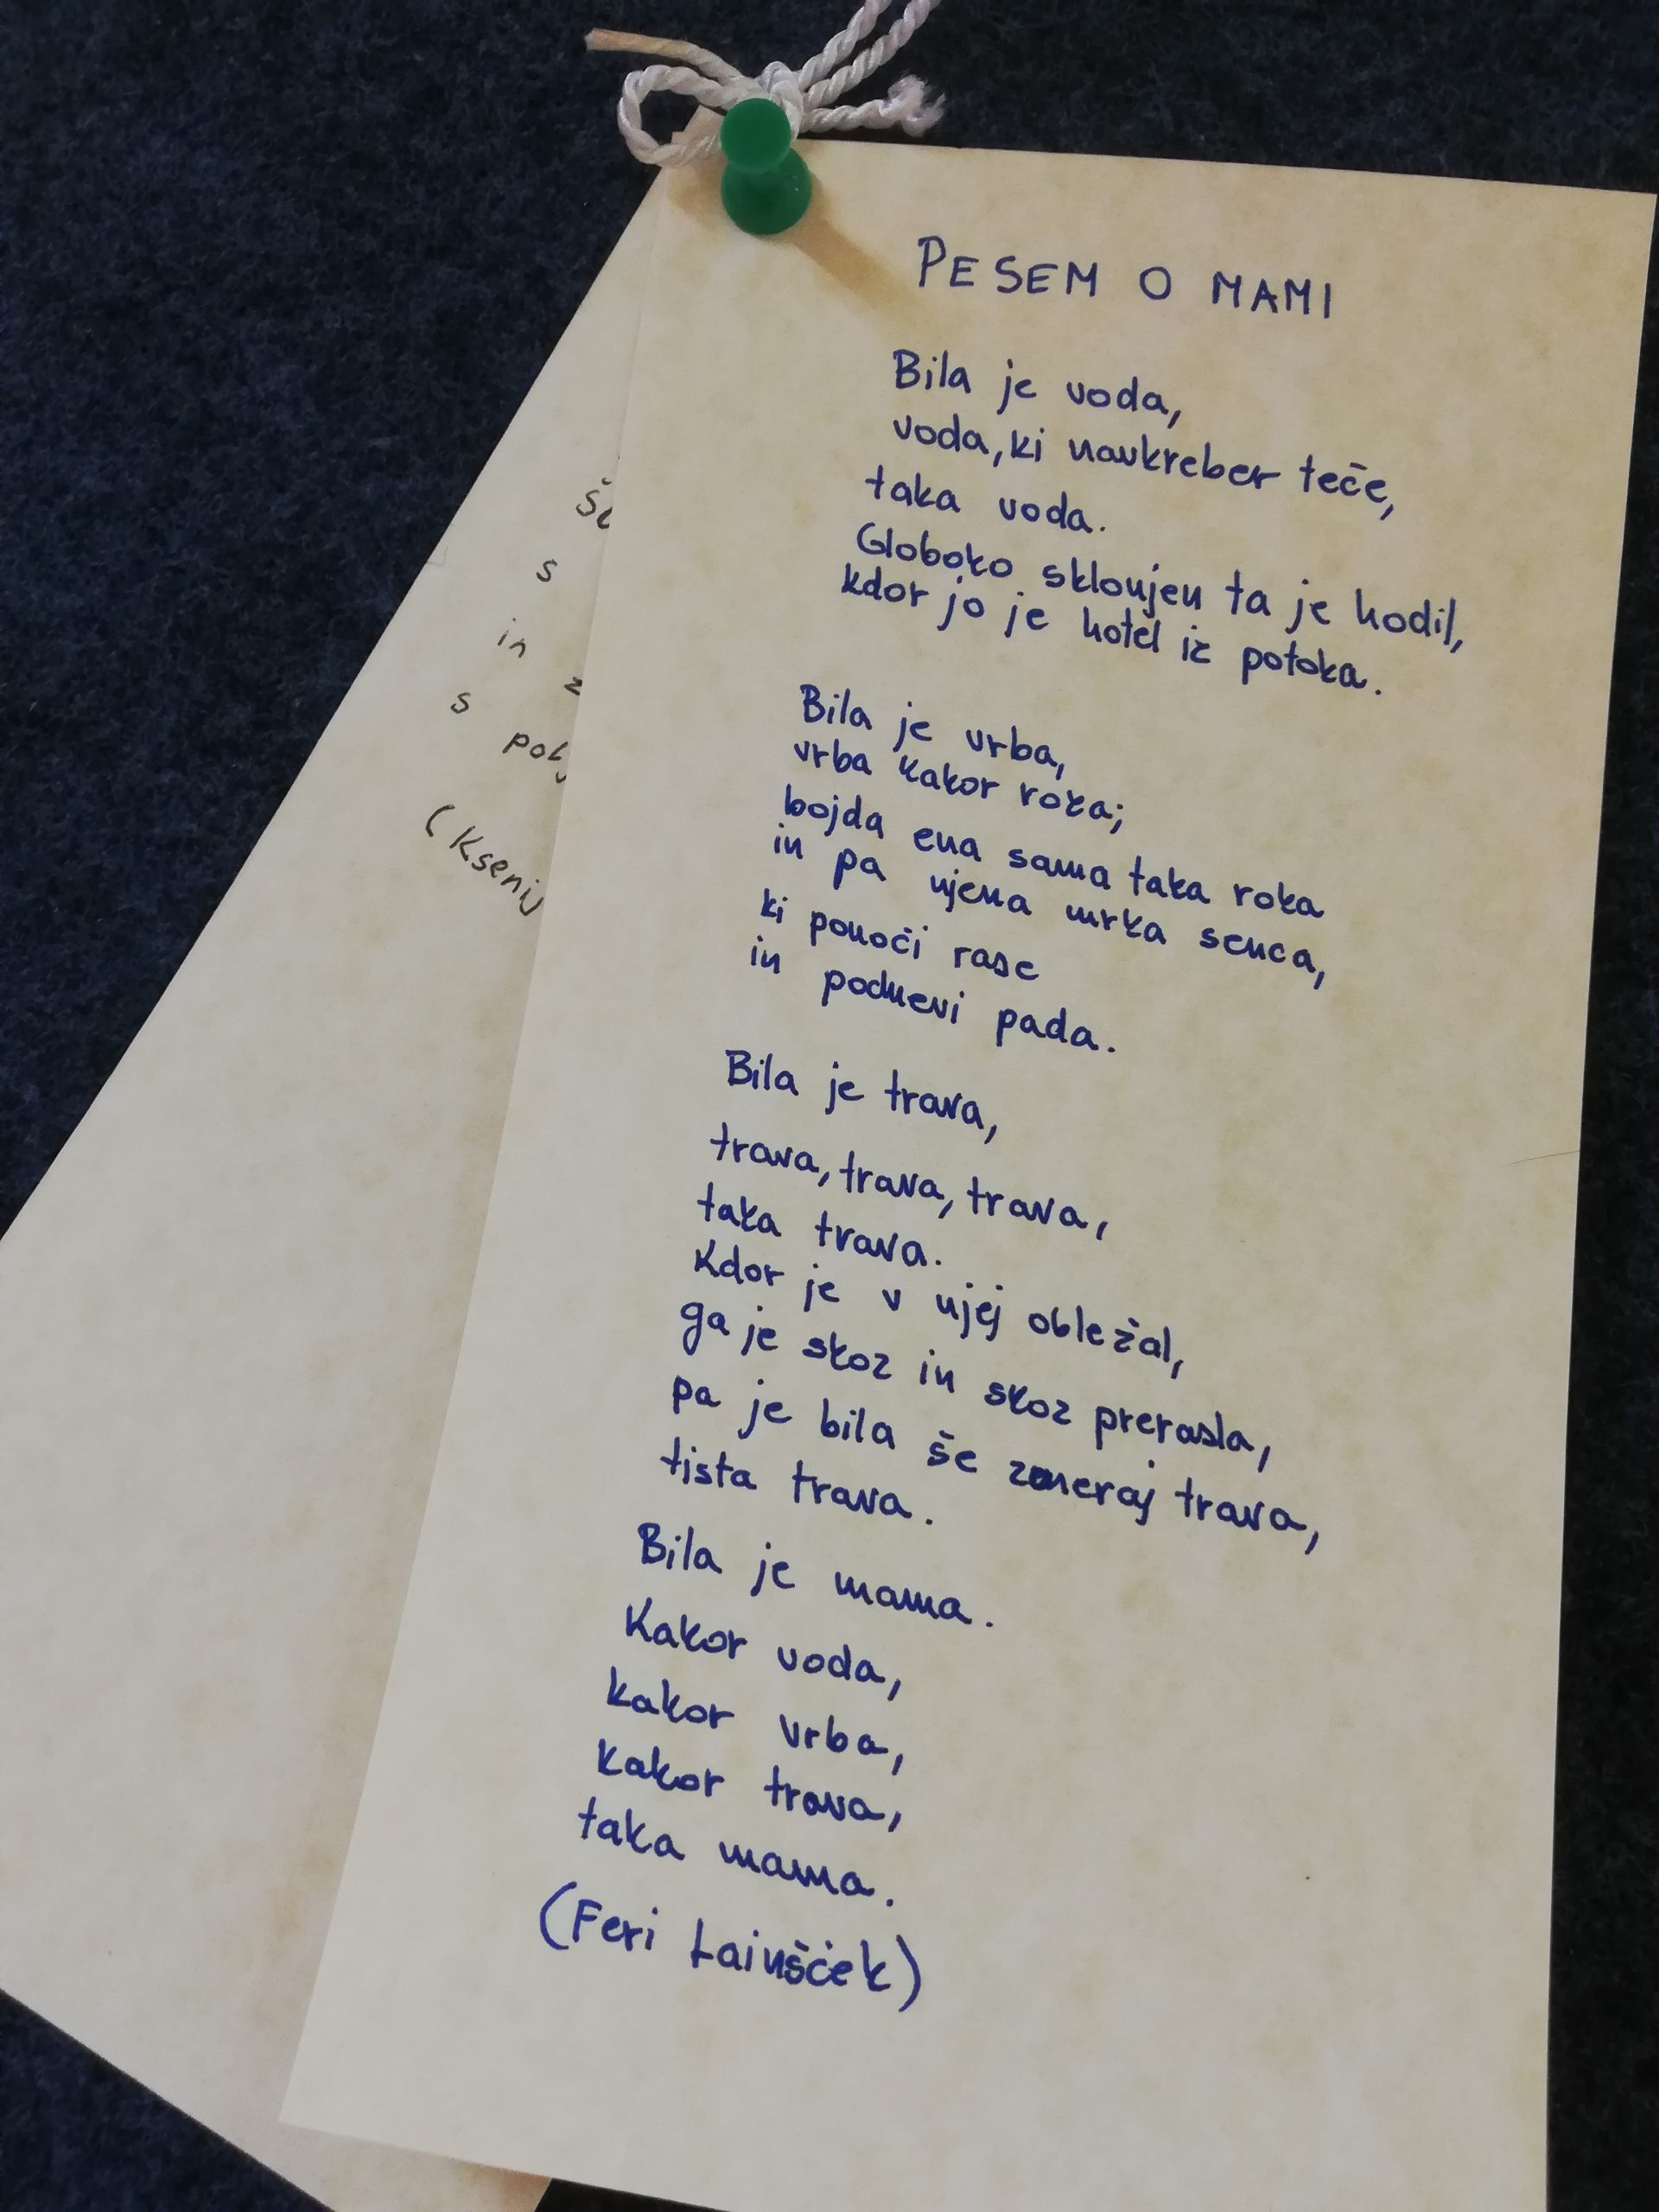 PESEM O MAMI
Bila je voda,
voda, ki navkreber teče,
taka voda.
Globoko sklonjen ta je hodil,
kdor jo je hotel iz potoka.
Bila je vrba,
vrba kakor roka;
bojda ena sama taka roka
in pa njena mrka senca,
ki ponoči rase
in podnevi pada.
Bila je trava,
trava, trava, trava,
taka trava.
Kdor je v njej obležal,
ga je skoz in skoz prerasla,
pa je bila še zmeraj trava,
tista trava.
Bila je mama.
Kakor voda,
kakor vrba,
kakor trava,
taka mama.
(Feri Lainšček)
s
in z
s
(Ksenij